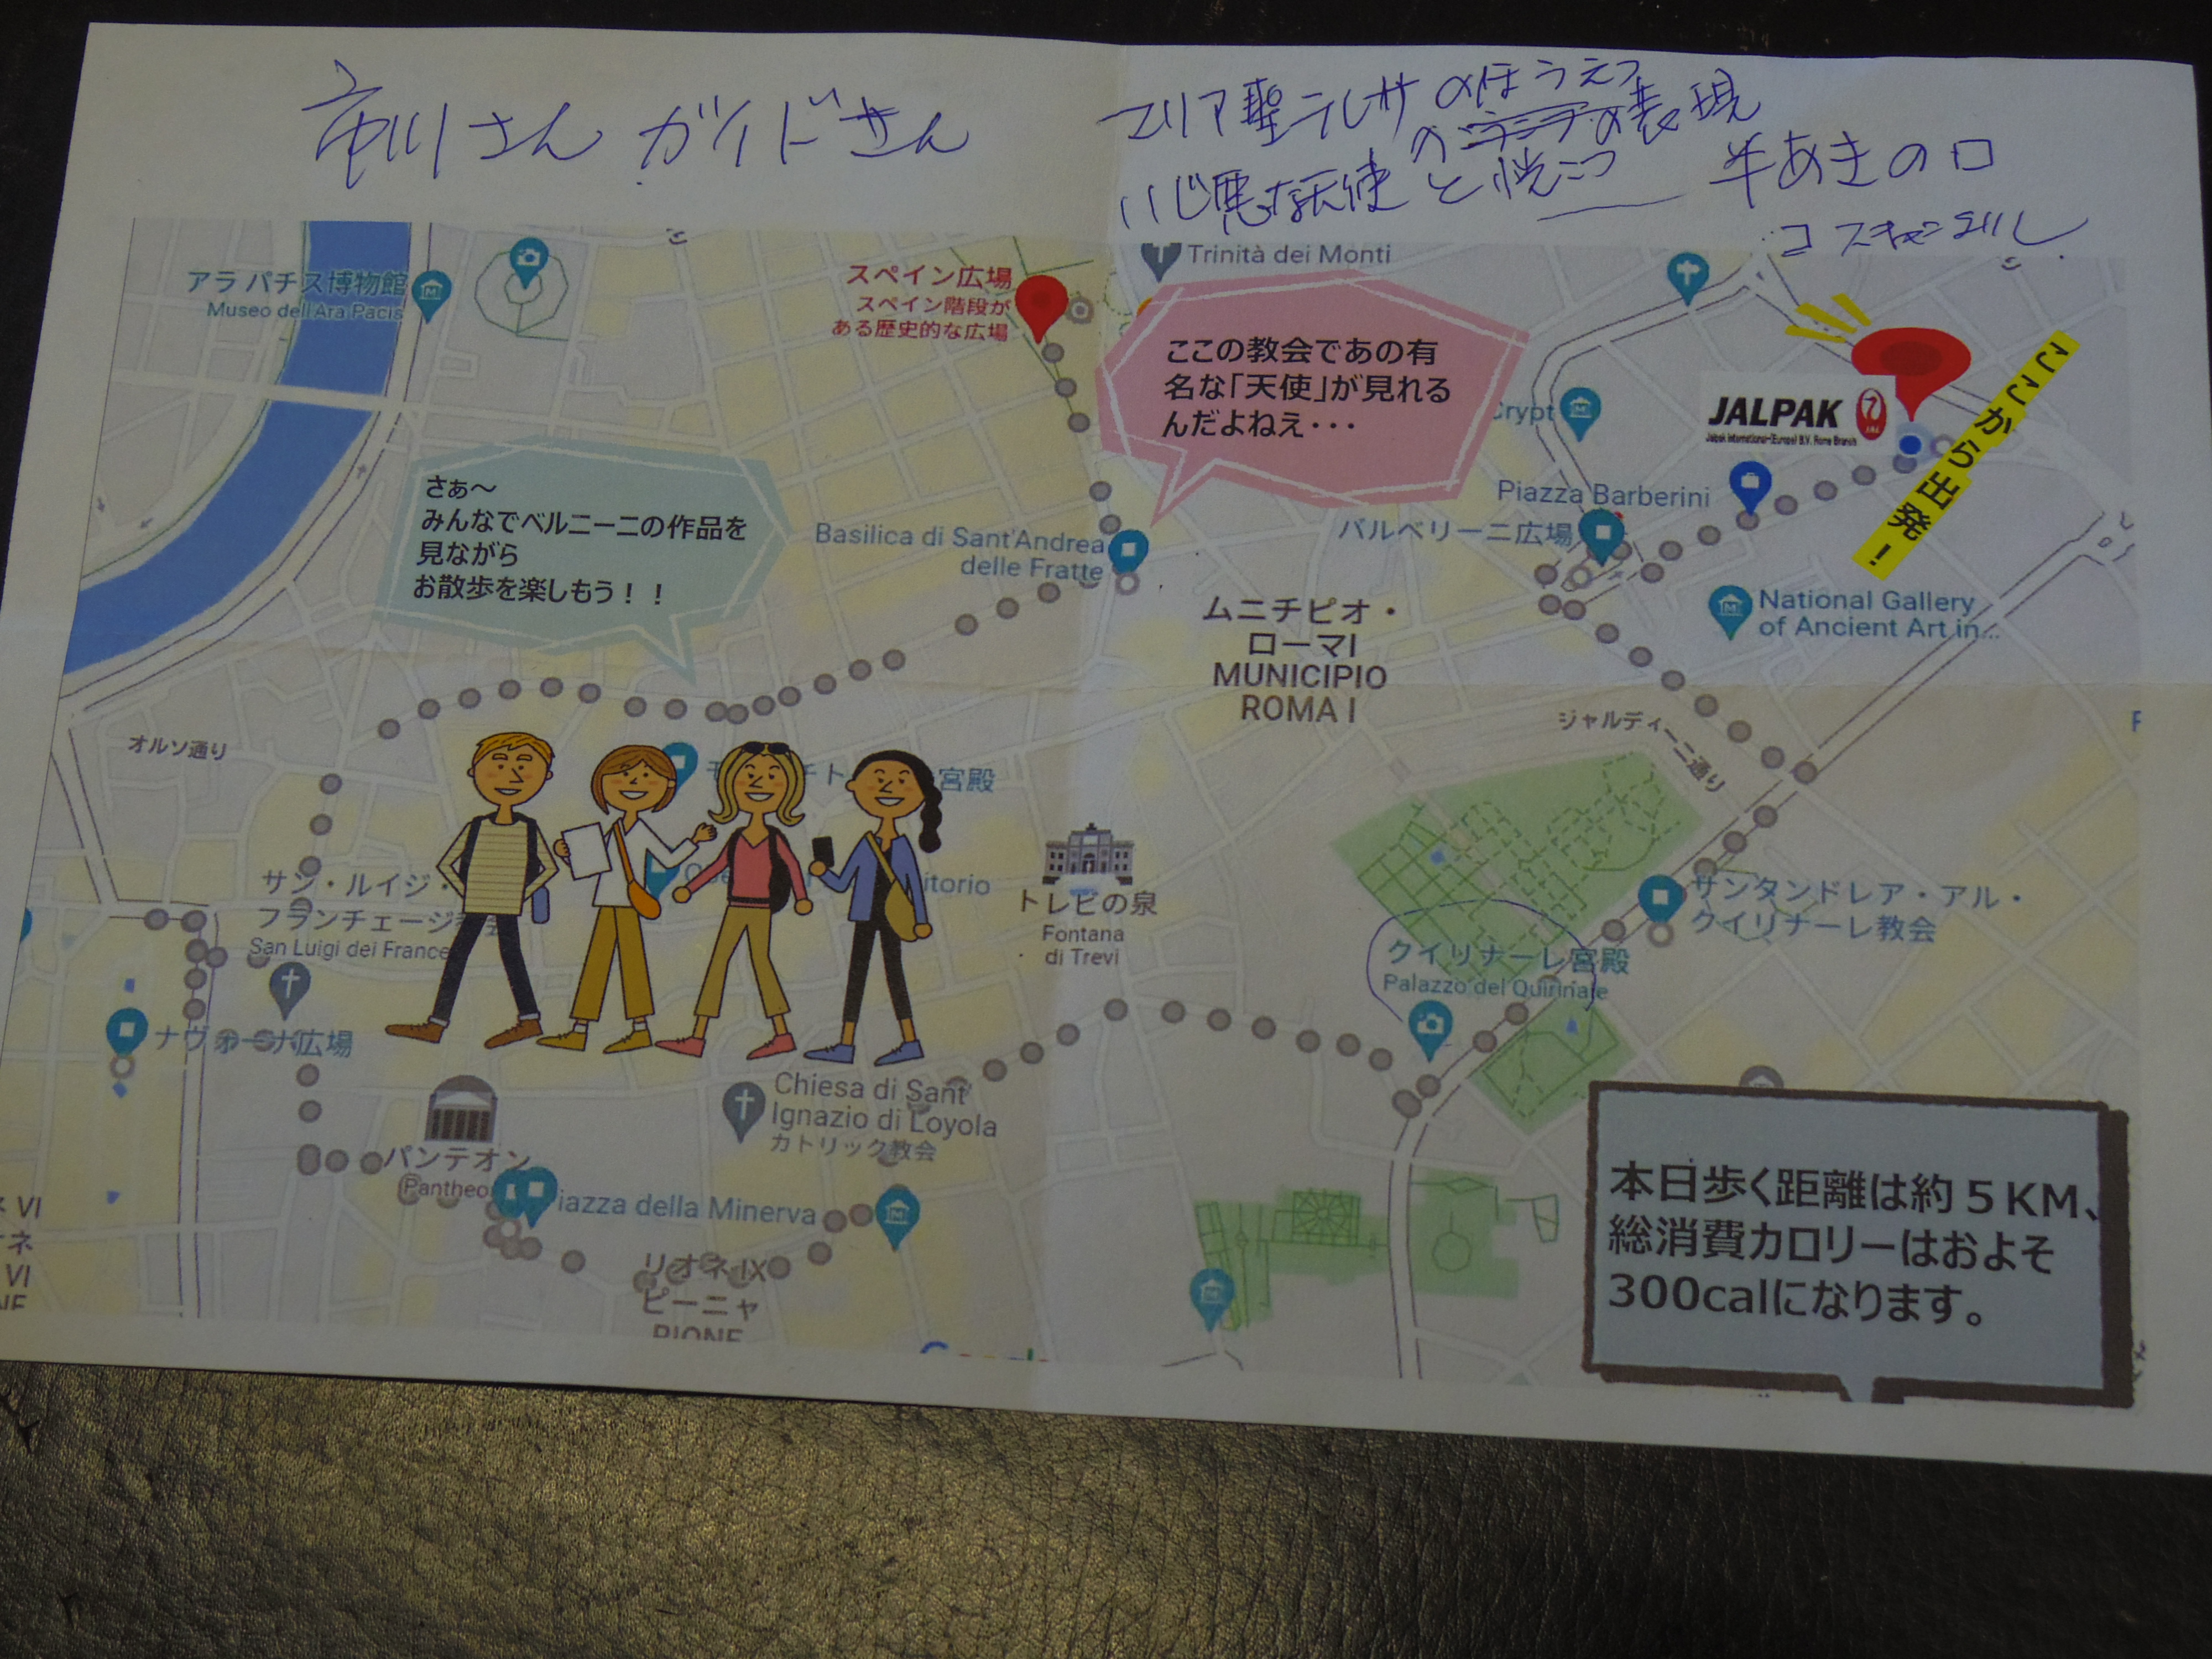 市川さん ガイドさん
マリア聖テレサのほうえつ
の表現
いじ悪な天使と恍こつ
半あきの口
スキャンダル
Trinità dei Monti
アラ パチス博物館
Museo dell'Ara Pacis
スペイン広場
スペイン階段が
ある歴史的な広場
ここの教会であの有
名な「天使」が見れる
んだよねえ・・・
Crypt
JALPAK
Jalpak International (Europe) B.V. Rome Branch
ここから出発!
さぁ~
みんなでベルニーニの作品を
見ながら
お散歩を楽しもう!!
Basilica di Sant'Andrea
delle Fratte
Piazza Barberini
バルベリーニ広場
National Gallery
of Ancient Art in...
ムニチピオ・
ローマI
MUNICIPIO
ROMA I
ジャルディーニ通り
オルソ通り
宮殿
itorio
サン・ルイジ・
フランチェージ
San Luigi dei France
トレビの泉
Fontana
di Trevi
サンタンドレア・アル・
クイリナーレ教会
クイリナーレ宮殿
Palazzo del Quirinale
ナヴォーナ広場
Chiesa di Sant'
Ignazio di Loyola
カトリック教会
パンテオン
Pantheo
iazza della Minerva
VI
ネ
VI
リオネ IX
ピーニャ
RIONE
Google
本日歩く距離は約5KM、
総消費カロリーはおよそ
300calになります。